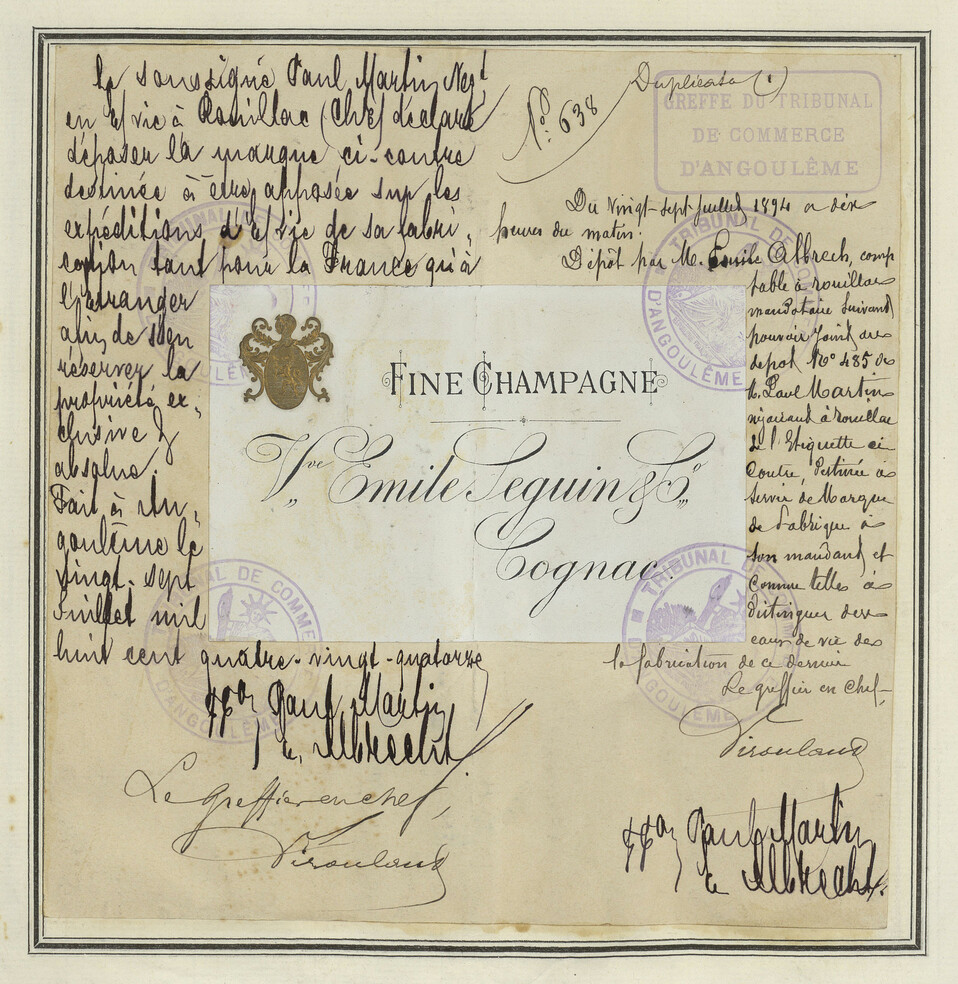 Le soussigné Paul Martin Negt
en E/vie à Rouillac (Chte) déclare
déposer la marque ci-contre
destinée à être apposée sur les
expéditions d'E/vie de sa fabri-
cation tant pour la France qu'à
l'étranger
afin de s'en
réserver la
propriété ex-
clusive &
absolue.
Fait à An-
goulême le
vingt-sept
Juillet mil
huit cent quatre-vingt-quatorze
Paul Martin
Albrecht
Le Greffier en chef,
No. 638
Duplicata (1)
GREFFE DU TRIBUNAL
DE COMMERCE
D'ANGOULÊME
Du vingt-sept juillet 1894 a dix
heures du matin.
Dépôt par M. Emile Albrech, comp
table à rouillac
mandataire suivant
pouvoir joint au
depot No 485 de
M. Paul Martin
négociant à rouillac
de l'Etiquette ci
contre, Destinée à
servir de Marque
de fabrique à
son mandant et
comme telles à
distinguer des
eaux de vie de
la fabrication de ce dernier
Le greffier en chef
Paul Martin
Albrecht
FINE CHAMPAGNE
Vve Emile Seguin & Co
Cognac.
TRIBUNAL DE COMMERCE
D'ANGOULÊME
TRIBUNAL DE COMMERCE
D'ANGOULÊME
TRIBUNAL DE COMMERCE
D'ANGOULÊME
TRIBUNAL DE COMMERCE
D'ANGOULÊME